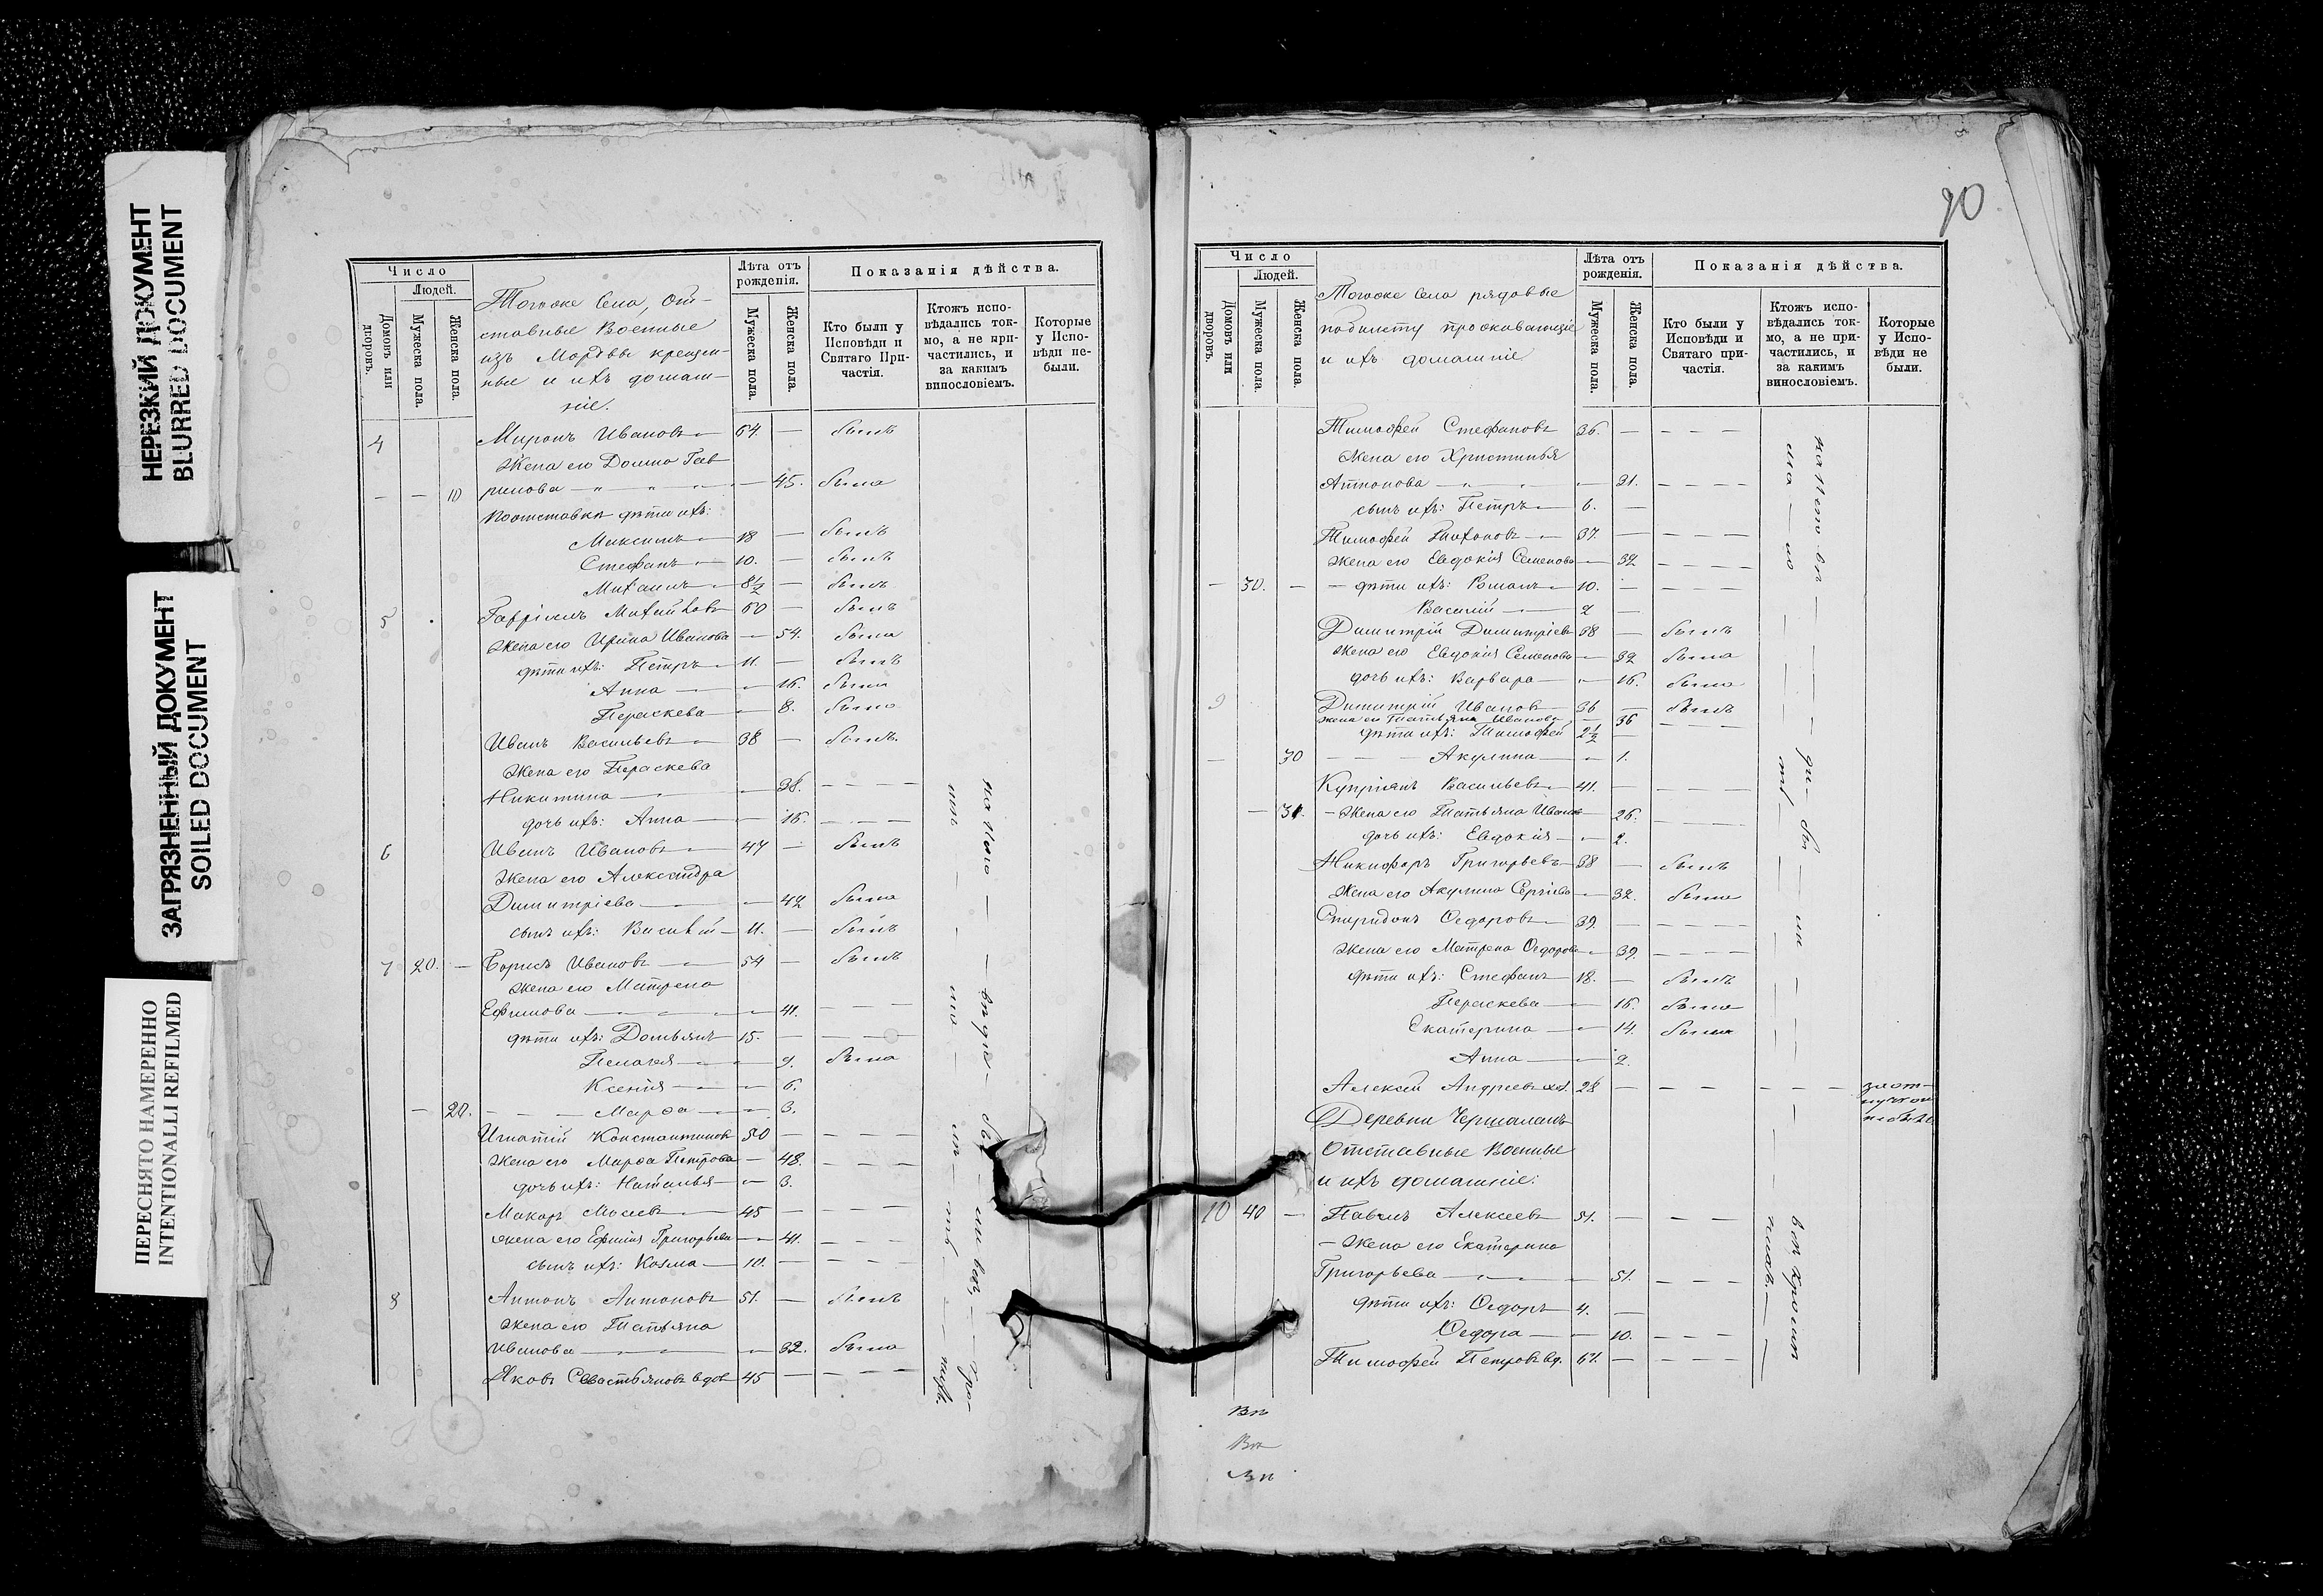 НЕРЕЗКИЙ ДОКУМЕНТ
BLURRED DOCUMENT
ЗАГРЯЗНЕННЫЙ ДОКУМЕНТ
SOILED DOCUMENT
ПЕРЕСНЯТО НАМЕРЕННО
INTENTIONALLI REFILMED
Число
Людей.
Домовъ или дворовъ.
Мужеска пола.
Женска пола.
Тогоже Села, От-
ставные Военные
изъ Мордвы крещен-
ные и ихъ домаш-
ніе.
Лѣта отъ рожденія.
Мужеска пола.
Женска пола.
Показанія дѣйства.
Кто были у Исповѣди и Святаго При-частія.
Ктожъ испо-вѣдались ток-мо, а не при-частились, и за какимъ винословіемъ.
Которые у Испо-вѣди не-были.
4 Миронъ Ивановъ 64. — былъ
Жена его Домна Гав
рилова — 45. была
— — 10
дѣти ихъ:
Максимъ 18 — былъ
Стефанъ 10. — былъ
Михаилъ 8½ — былъ
5 Гавріилъ 60 — былъ
Жена его Ирина Иванова — 54. была
дѣти ихъ: Петръ 11. — былъ
Анна — 16. была
Параскева — 8. была
Иванъ Васильевъ 38 — былъ.
Жена его Параскева
Никитина — 38. — — —
дочь ихъ: Анна — 16. — — —
6 Иванъ Ивановъ 47 — былъ
Жена его Александра
Димитріева — 42 была
сынъ ихъ: Василій 11. — былъ
7 20. — Борисъ Ивановъ 54 — былъ
Жена его Матрена
Ефимова — 41. — — —
дѣти ихъ: Домьянъ 15. — — — —
Пелагея — 9. была
Ксенія — 6.
— 20. — — — Марѳа — 3.
Игнатій Константиновъ 50 — — — —
Жена его Марѳа Петрова — 48. — — —
дочь ихъ: Наталья — 3.
Макаръ 45 — — — —
жена его Ефимія Григорьева — 41. — — —
сынъ ихъ: Козма 10. — — — —
8 Антонъ Антоновъ 51. — былъ
Жена его Татьяна
Иванова — 32. была
Яковъ Севастьяновъ вдов 45 — — — —
90
Число
Людей.
Домовъ или дворовъ.
Мужеска пола.
Женска пола.
Тогоже Села рядовые
побилету проживающіе
и ихъ домашніе
Лѣта отъ рожденія.
Мужеска пола.
Женска пола.
Показанія дѣйства.
Кто были у Исповѣди и Святаго при-частія.
Ктожъ испо-вѣдались ток-мо, а не при-частились, и за какимъ винословіемъ.
Которые у Испо-вѣди не были.
Тимофей Стефановъ 36. — — — —
Жена его Христинья
Антонова — 31. — — — —
сынъ ихъ: Петръ 6. —
Тимофей Тихоновъ 37. — — — —
Жена его Евдокія Семенова — 32 — — — —
— 30. — — дѣти ихъ: Романъ 10. — — — —
Василій 2 —
Димитрій Димитріевъ 38 — былъ
Жена его Евдокія Семенова — 32 была
дочь ихъ: Варвара — 16. была
9 Димитрій Ивановъ 36 — былъ
Жена его Татьяна Иванова — 36 — — —
дѣти ихъ: Тимофей 2½ —
— 30 — — — Акулина — 1.
Купріянъ Васильевъ 41. — — — —
— 31. — Жена его Татьяна Иванов 26. — — — —
дочь ихъ: Евдокія — 2.
Никифоръ Григорьевъ 38 — былъ
Жена его Акулина Сергіева — 32. была
Спиридонъ Ѳедоровъ 39. — — — — —
Жена его Матрена Ѳедорова — 39. — — — —
дѣти ихъ: Стефанъ 18. — былъ
Параскева — 16. была
Екатерина — 14. была
Анна — 2.
Алексѣй Андреевъ хол. 28 — — — — — —
Деревни
Отставные Военные
и ихъ домашніе:
10 40 — Павелъ Алексеевъ 51. — — — —
— Жена его Екатерина
Григорьева — 51. — — — —
дѣти ихъ: Ѳедоръ 4. —
Ѳедора — 10. — — —
Тимофей Петровъ вд. 61. — — — —